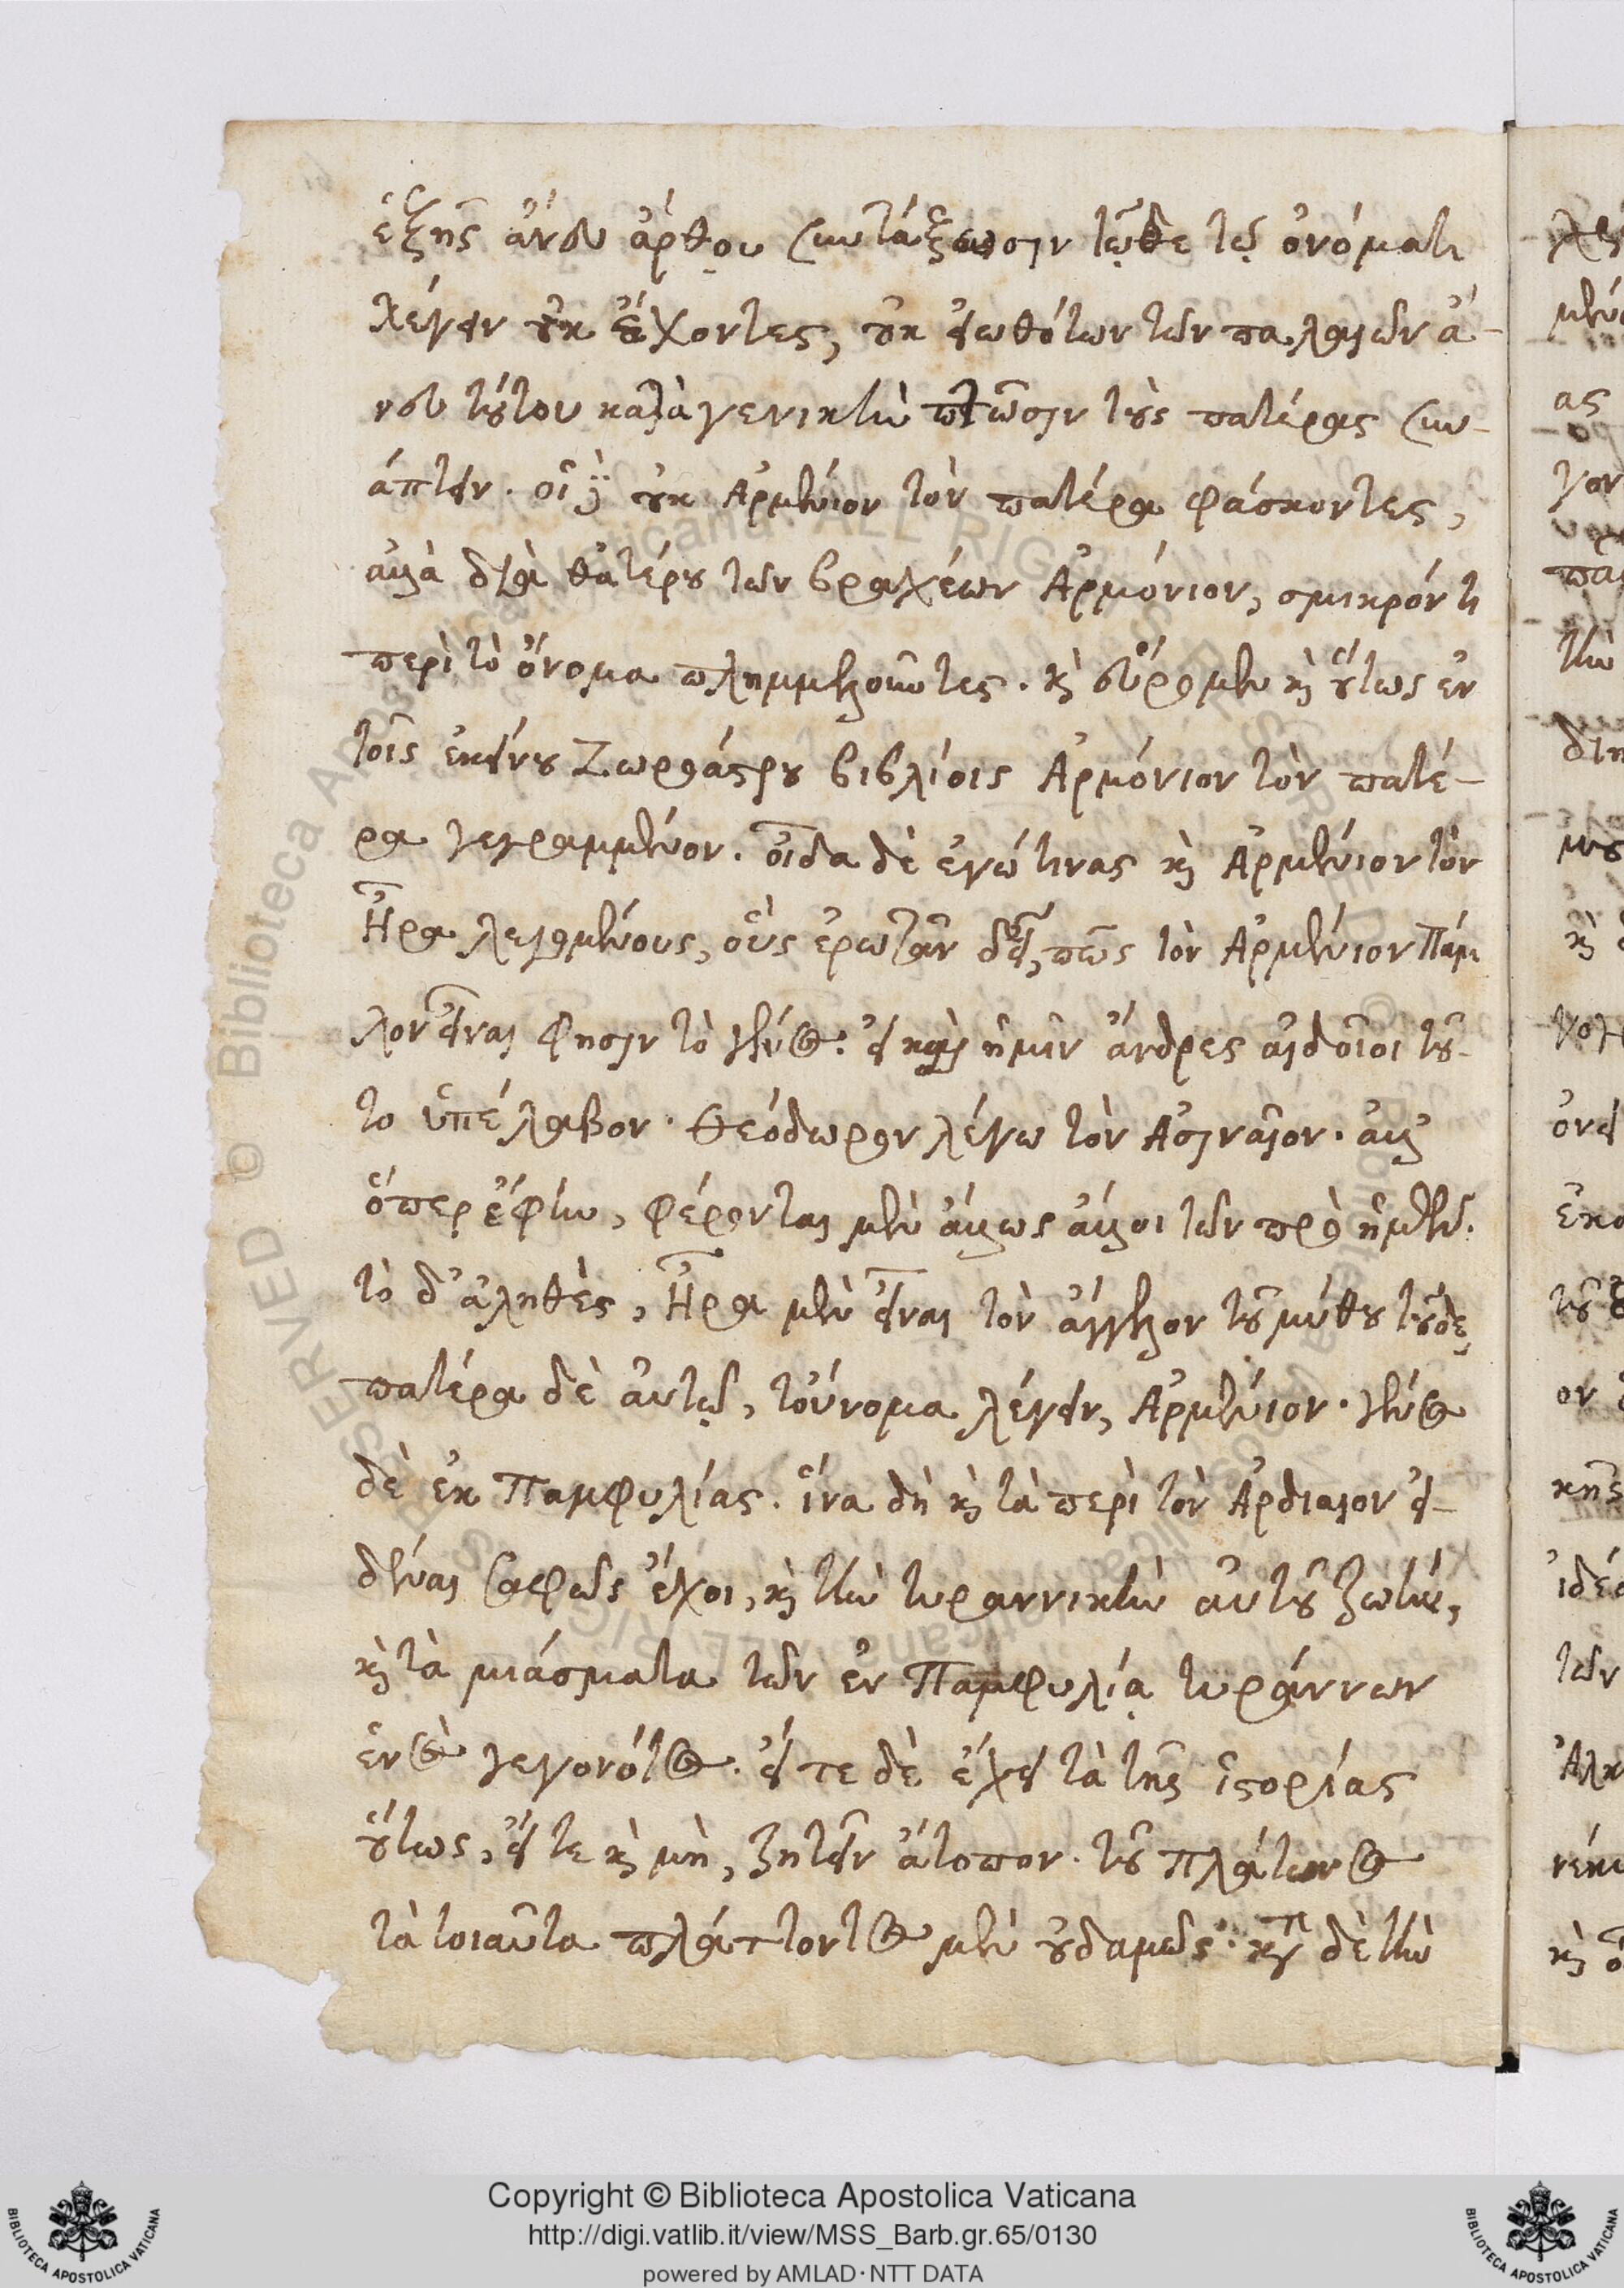 ἑξῆς ἄνευ ἄρθρου συντάξωσιν τῷδε τῷ ὀνόματι
λέγειν οὐκ ἔχοντες, οὐκ εἰωθότων τῶν παλαιῶν ἄ-
νευ τούτου κατὰ γενικὴν πτῶσιν τοὺς πατέρας συν-
άπτειν. οἱ δὲ οὐκ Ἀρμένιον τὸν πατέρα φάσκοντες,
ἀλλὰ διὰ θατέρου τῶν βραχέων Ἀρμόνιον, σμικρόν τι
περὶ τὸ ὄνομα πλημμελοῦντες. καὶ εὕρομεν καὶ οὕτως ἐν
τοῖς ἐκείνου Ζωροάστρου βιβλίοις Ἀρμόνιον τὸν πατέ-
ρα γεγραμμένον. οἶδα δὲ ἐγώ τινας καὶ Ἀρμένιον τὸν
Ἦρα λεγομένους, οὓς ἐρωτᾶν δεῖ, πῶς τὸν Ἀρμένιον Πάμ
λον εἶναι φησὶν τὸ γένος. εἰ καὶ ἡμῖν ἄνδρες αἰδοῖοι τοῦ-
το ὑπέλαβον. Θεόδωρον λέγω τὸν Ἀσιναῖον. ἀλλ'
ὅπερ ἔφην, φέρονται μὲν ἄλλως ἄλλοι τῶν πρὸ ἡμῶν.
τὸ δ' ἀληθὲς, Ἦρα μὲν εἶναι τὸν ἄγγελον τοῦ μύθου τοῦδε
πατέρα δὲ αὐτῷ, τοὔνομα λέγειν, Ἀρμένιον. γένος
δὲ ἐκ Παμφυλίας. ἵνα δὴ καὶ τὰ περὶ τὸν Ἀρδιαῖον εἰ-
δέναι σαφῶς ἔχοι, καὶ τὴν τυραννικὴν αὐτοῦ ζωήν,
καὶ τὰ μιάσματα τῶν ἐν Παμφυλίᾳ τυράννων
ἑνὸς γεγονότος. εἴτε δὲ ἔχει τὰ τῆς ἱστορίας
οὕτως, εἴτε καὶ μὴ, ζητεῖν ἄτοπον. τοῦ Πλάτωνος
τὰ τοιαῦτα πλάττοντος μὲν οὐδαμῶς. κατὰ δὲ τὴν